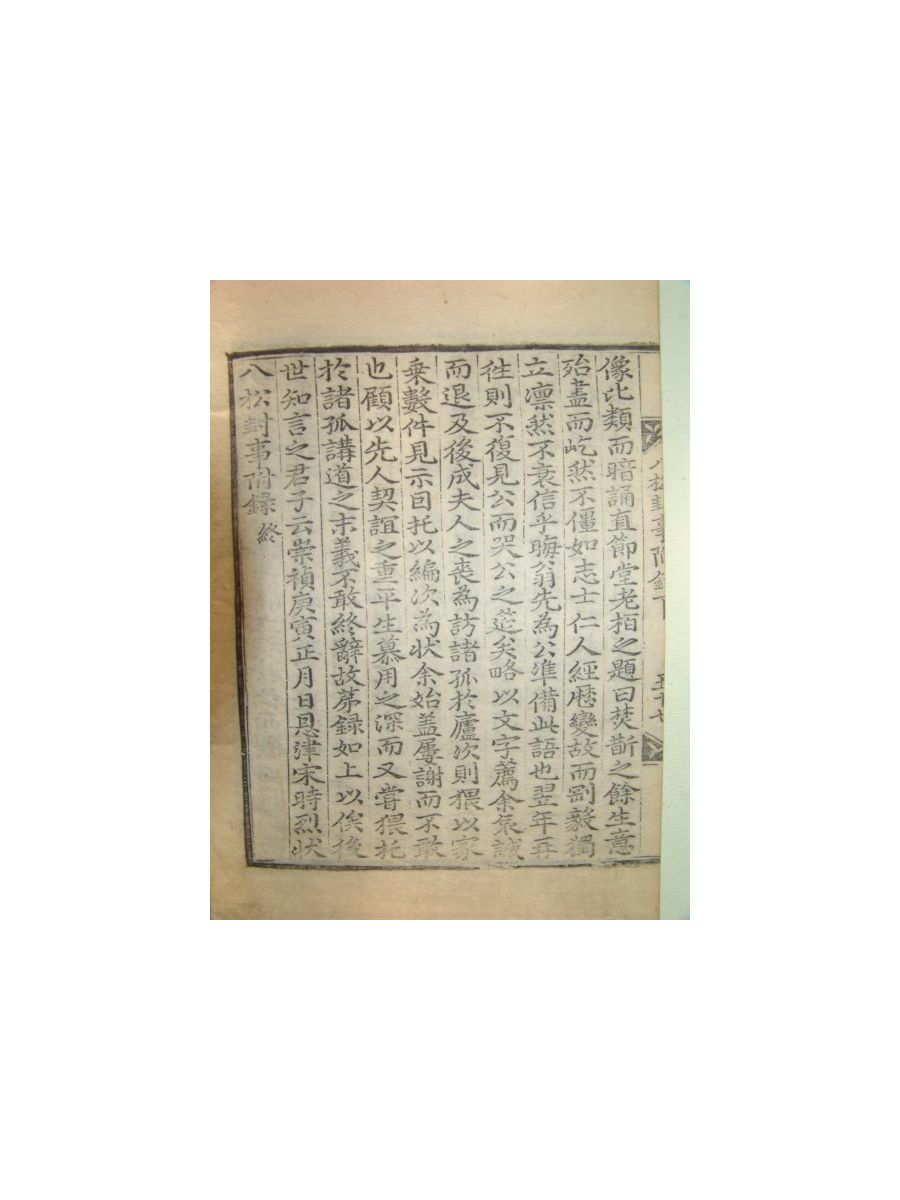 八松封事附錄下 五十七
像比類而暗誦直節堂老栢之題曰焚斮之餘生意
殆盡而屹然不僵如志士仁人經歷變故而剛毅獨
立凛然不衰信乎晦翁先為公準備此語也翌年再
徃則不復見公而哭公之筵矣略以文字薦余哀誠
而退及後成夫人之喪為訪諸孤於廬次則猥以家
乗數件見示囙托以編次為状余始盖屢謝而不敢
也顧以先人契誼之重平生慕用之深而又嘗猥托
於諸孤講道之末義不敢終辭故苐録如上以俟後
世知言之君子云崇禎庚寅正月日恩津宋時烈状
八松封事附録 終